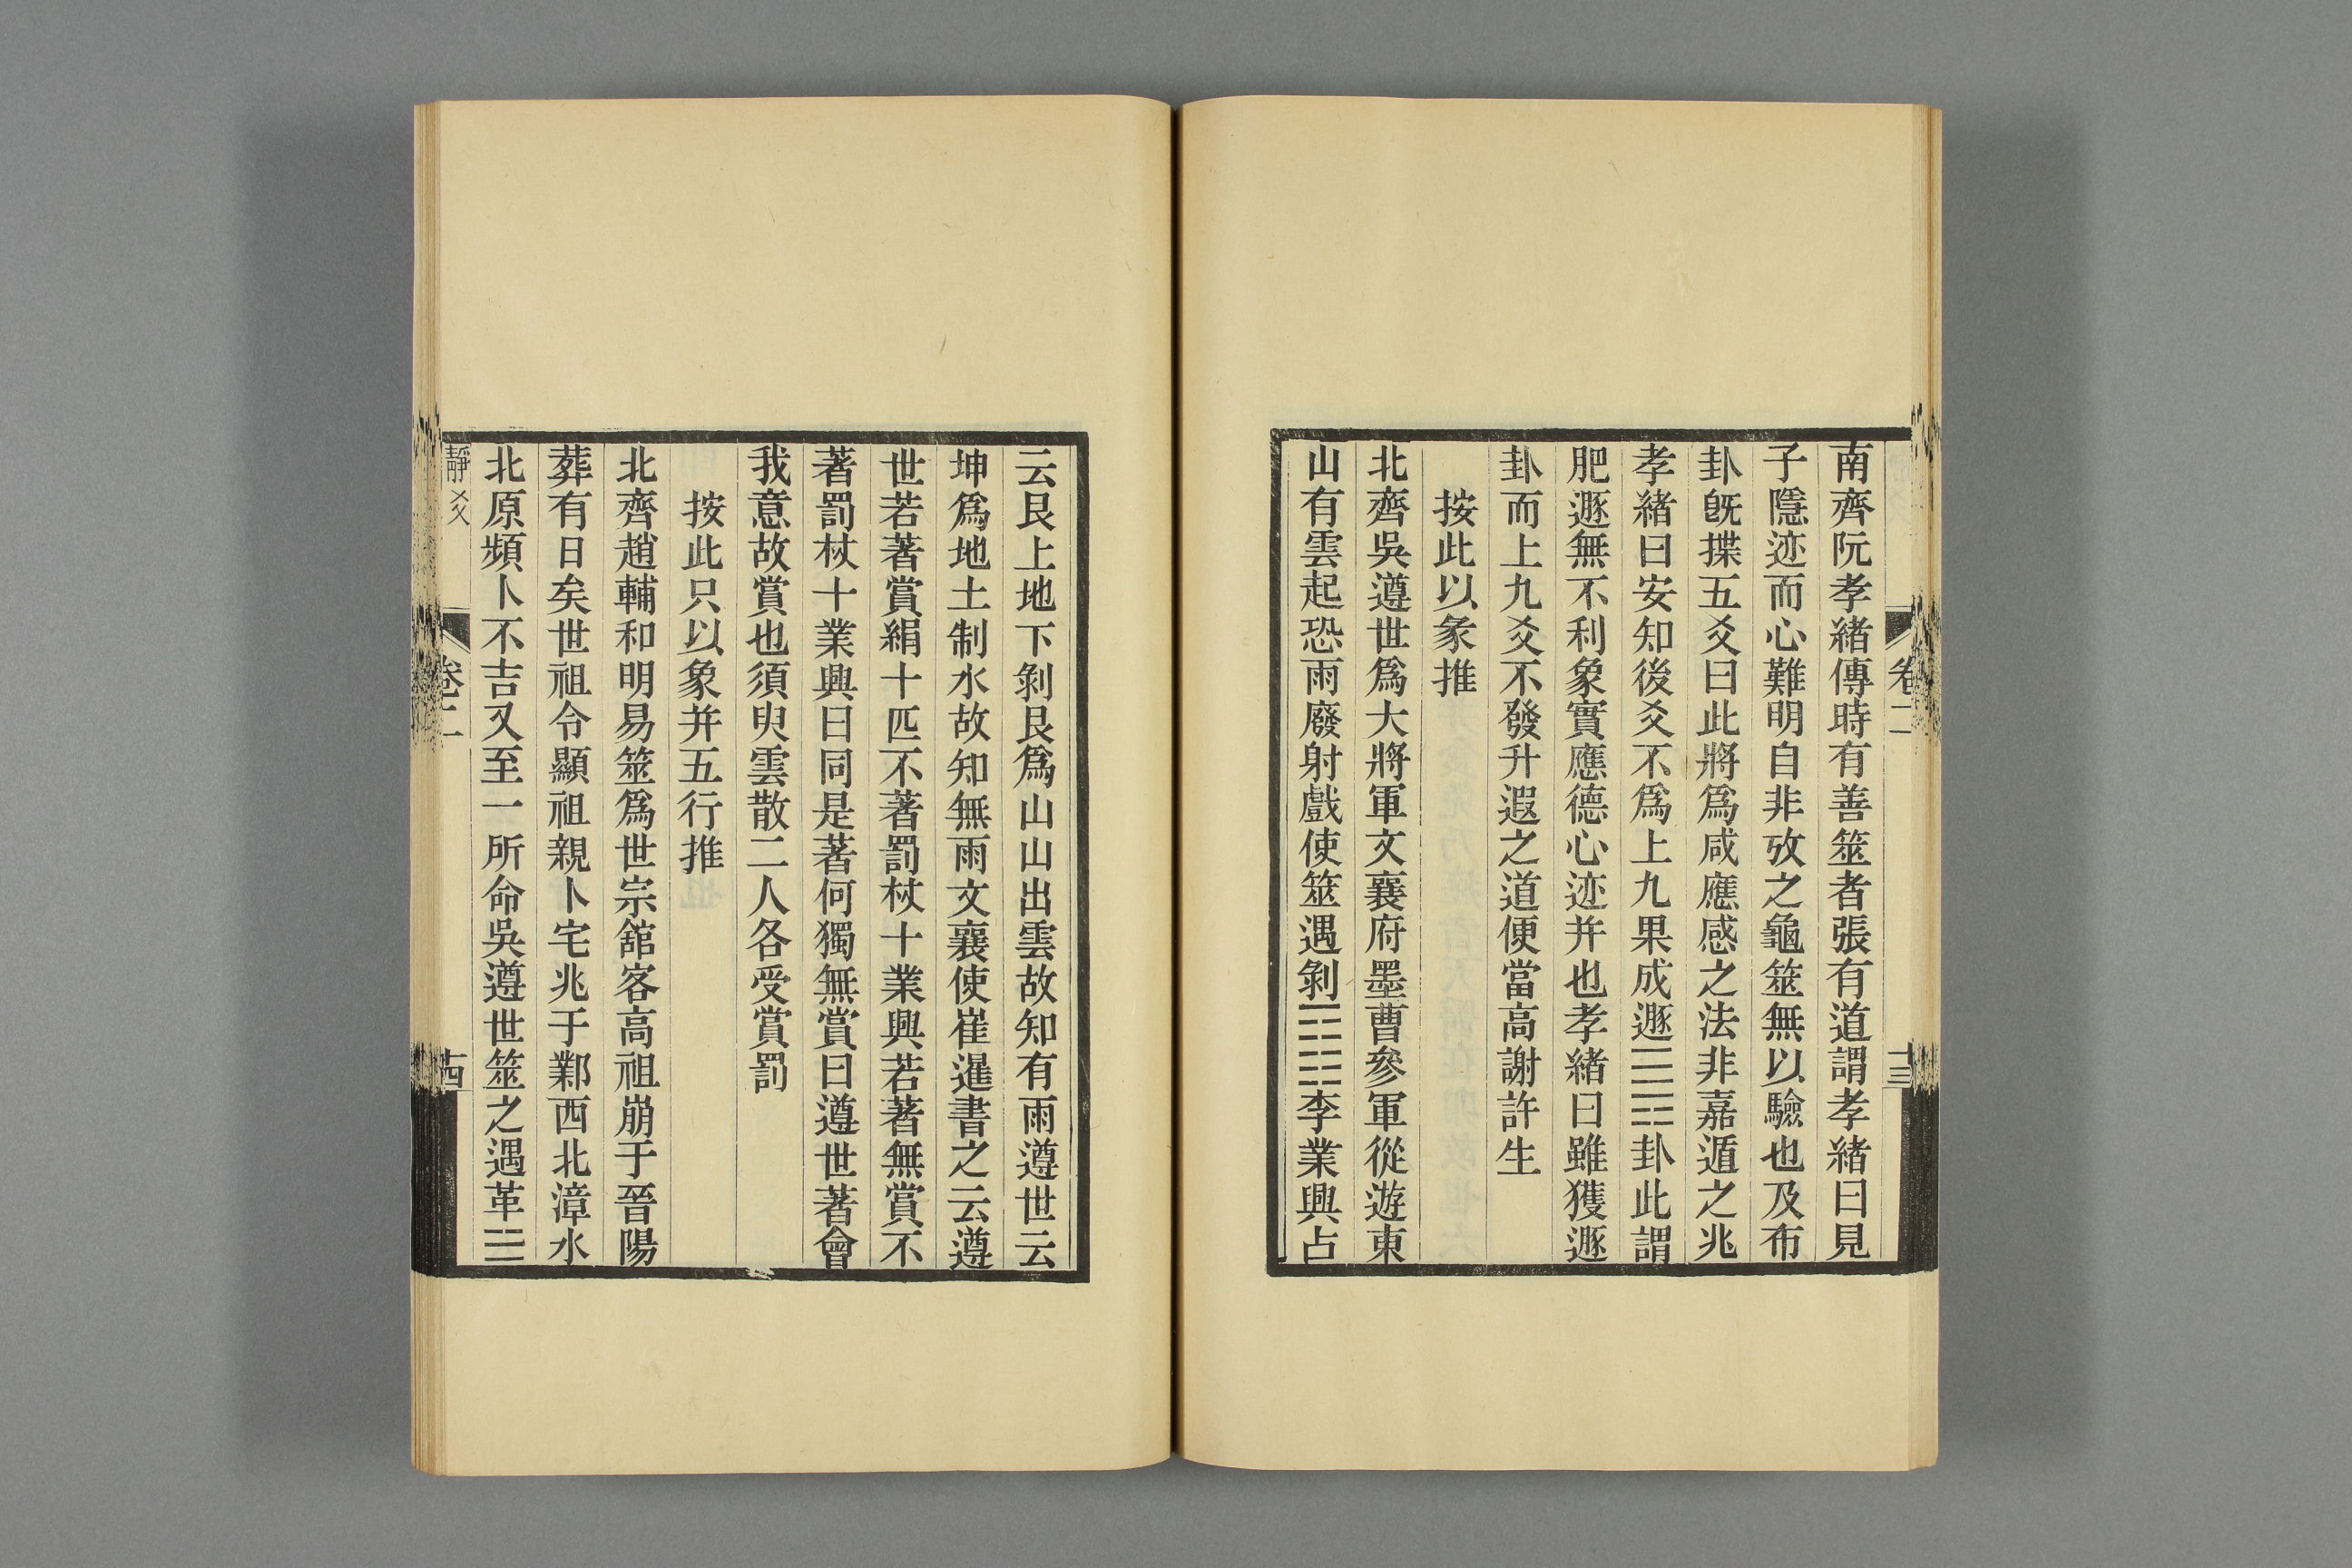 卷二
十三
南齊阮孝緒傳時有善筮者張有道謂孝緒曰見
子隱迹而心難明自非攷之龜筮無以驗也及布
卦旣揲五爻曰此將爲咸應感之法非嘉遁之兆
孝緒曰安知後爻不爲上九果成遯䷠卦此謂
肥遯無不利象實應德心迹并也孝緒曰雖獲遯
卦而上九爻不發升遐之道便當高謝許生
按此以彖推
北齊吳遵世爲大將軍文襄府墨曹參軍從遊東
山有雲起恐雨廢射戲使筮遇剝䷖李業興占
云艮上地下剝艮爲山山出雲故知有雨遵世云
坤爲地土制水故知無雨文襄使崔暹書之云遵
世若著賞絹十匹不著罰杖十業興若著無賞不
著罰杖十業興曰同是著何獨無賞曰遵世著會
我意故賞也須臾雲散二人各受賞罰
按此只以象并五行推
北齊趙輔和明易筮爲世宗舘客高祖崩于晉陽
葬有日矣世祖令顯祖親卜宅兆于鄴西北漳水
北原頻卜不吉又至一所命吳遵世筮之遇革☱
靜爻
卷二
十四